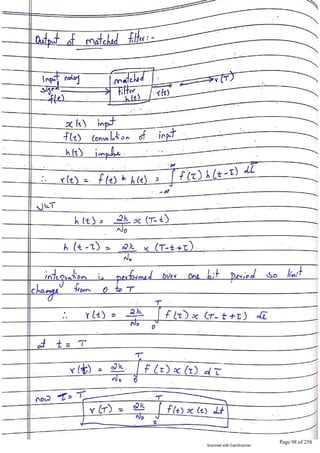 Output of matched filter:-
Input noisy signal f(t)
matched filter h(t)
r(t)
r(T)
x(t) input
f(t) convolution of input
h(t) impulse
∴ r(t) = f(t) * h(t) = ∫ f(τ) h(t-τ) dτ
∞
-∞
WKT
h(t) = 2k/N₀ x (T-t)
h(t-τ) = 2k/N₀ x (T-t+τ)
integration is performed over one bit period so limit
change from 0 to T
∴ r(t) = 2k/N₀ ∫₀ᵀ f(τ) x (T-t+τ) dτ
at t = T
r(t) = 2k/N₀ ∫₀ᵀ f(τ) x(τ) dτ
now τ = T
r(T) = 2k/N₀ ∫₀ᵀ f(t) x(t) dt
Scanned with CamScanner
Page 98 of 258